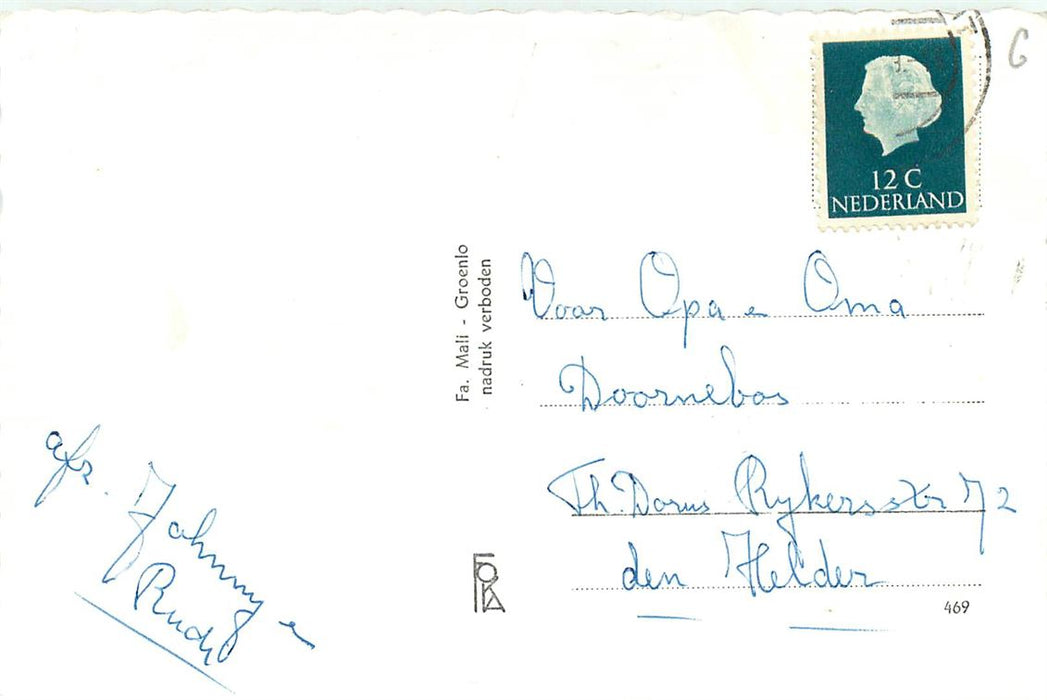 G
12 C
NEDERLAND
Fa. Mali - Groenlo
nadruk verboden
Voor Opa e Oma
Doornebos
Th. Dorus Rykersstr 72
den Helder
afz. Johnny e
Rudy
FOKA
469